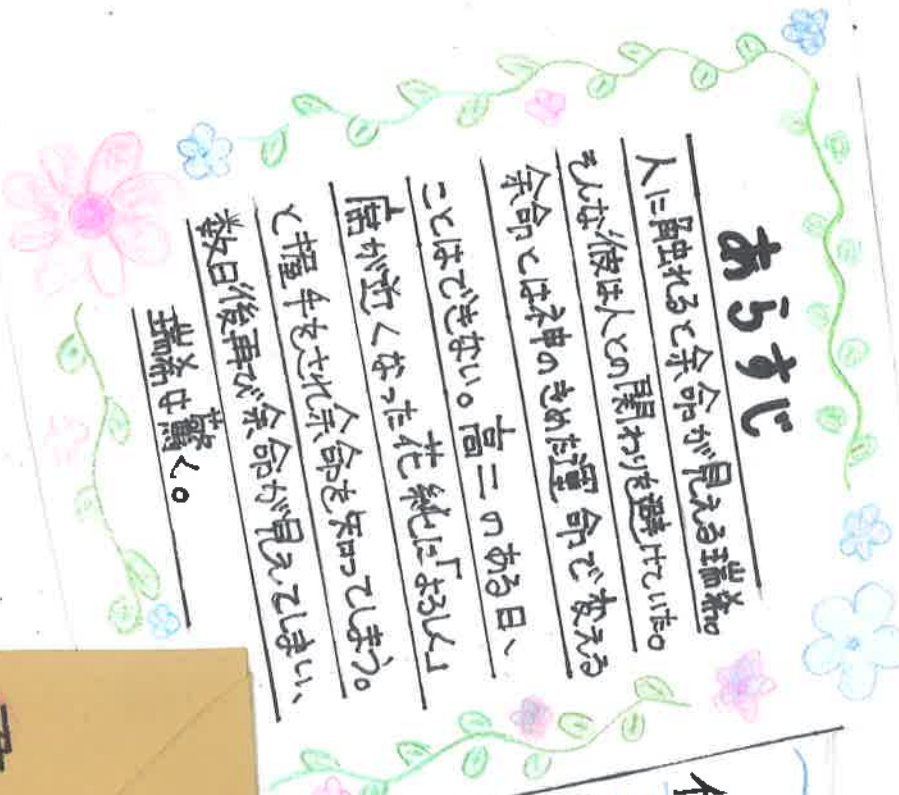 あらすじ
人に触れると余命が見える瑞希。
そんな彼は人との関わりを避けていた。
余命とは神のきめた運命で変える
ことはできない。高二のある日、
席が近くなった花純に「よろしく」
と握手をされ余命を知ってしまう。
数日後再び余命が見えてしまい、
瑞希は驚く。